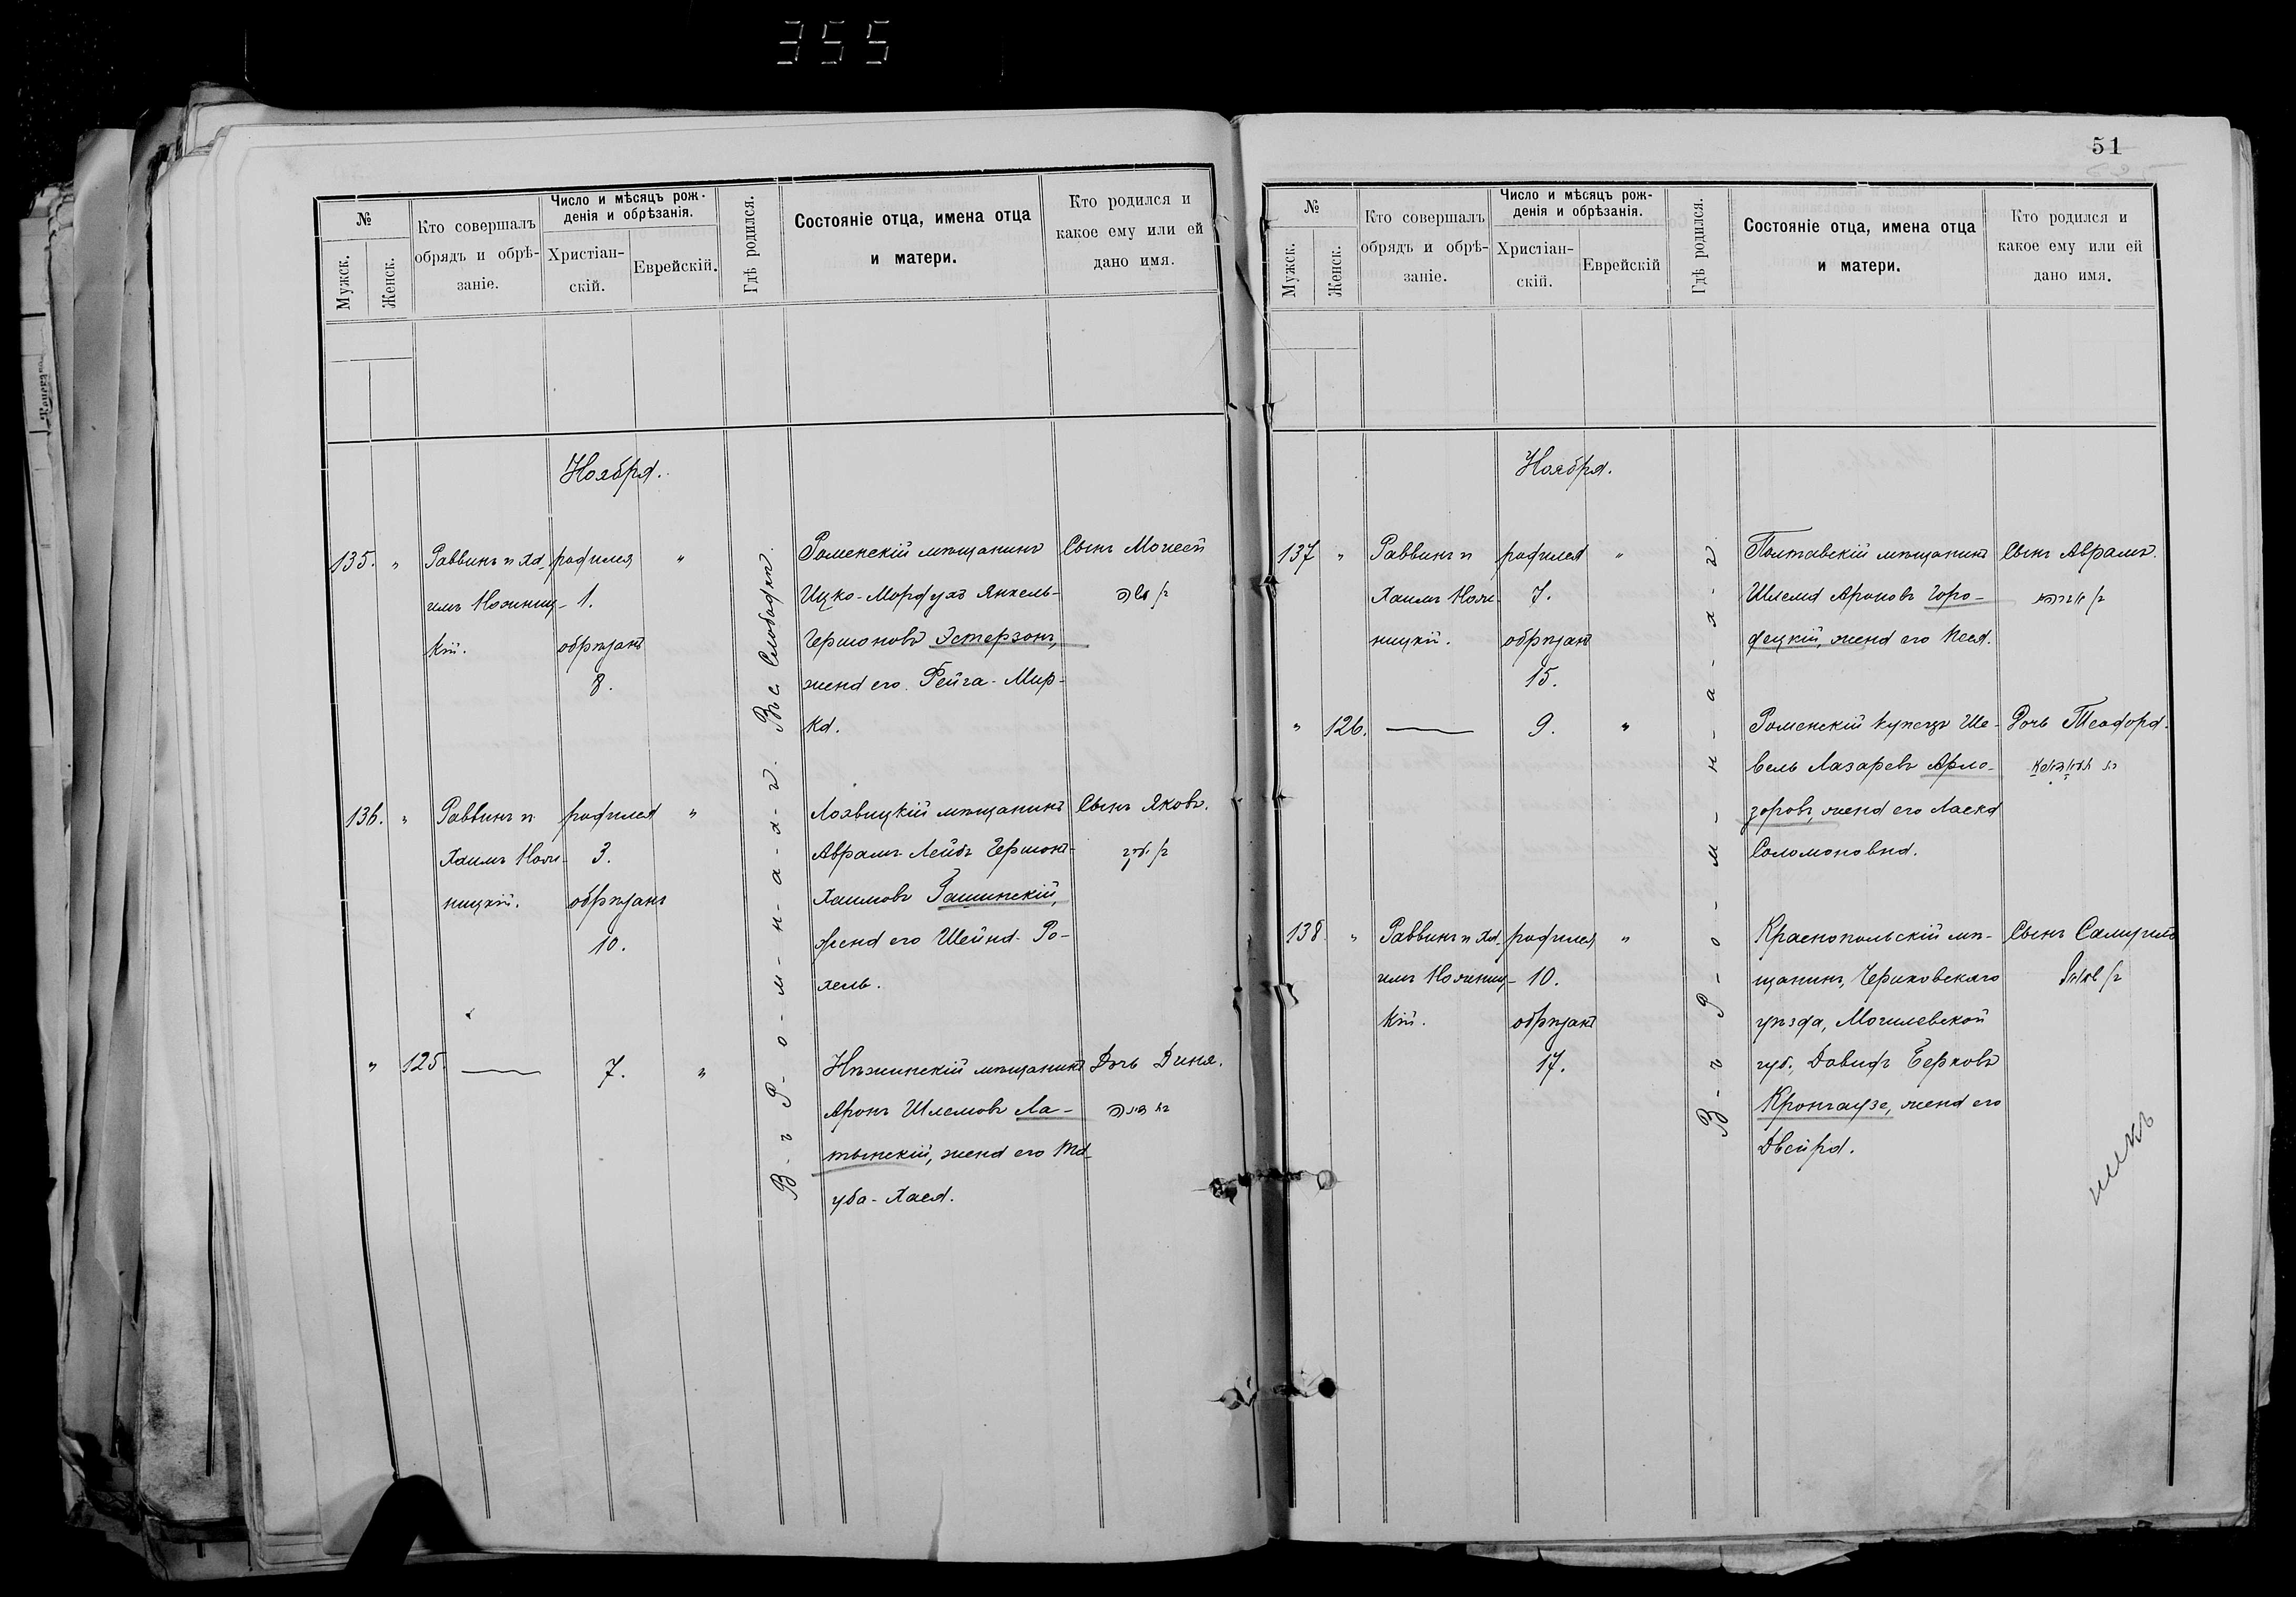 355
№
Мужск.
Женск.
Кто совершалъ
обрядъ и обрѣ-
заніе.
Число и мѣсяцъ рож-
денія и обрѣзанія.
Христіан-
скій.
Еврейскій.
Гдѣ родился.
Состояніе отца, имена отца
и матери.
Кто родился и
какое ему или ей
дано имя.
Ноября.
135. " Раввинъ и Ха-
имъ Ножниц-
кій.
родился "
1.
обрѣзанъ
8.
Въ с. Слободкѣ.
Роменскій мѣщанинъ
Ицко-Мордухъ Янкель-
Гершоновъ Эстерзонъ,
жена его Фейга-Мир-
ка.
Сынъ Моисей
משה
136. " Раввинъ и
Хаимъ Нож-
ницкій.
родился "
3.
обрѣзанъ
10.
В-ъ Р-о-м-н-а-х-ъ.
Лохвицкій мѣщанинъ
Абрамъ-Лейбъ Гершонъ-
Хаимовъ Рашинскій,
жена его Шейна-Ро-
хель.
Сынъ Яковъ.
יעקב
" 125. —— 7. "
Нѣжинскій мѣщанинъ
Аронъ Шлемовъ Ла-
тынскій, жена его Та-
уба-Хася.
Дочь Диня.
51
№
Мужск.
Женск.
Кто совершалъ
обрядъ и обрѣ-
заніе.
Число и мѣсяцъ рож-
денія и обрѣзанія.
Христіан-
скій.
Еврейскій
Гдѣ родился.
Состояніе отца, имена отца
и матери.
Кто родился и
какое ему или ей
дано имя.
Ноября.
137 " Раввинъ и
Хаимъ Нож-
ницкій.
родился "
7.
обрѣзанъ
15.
В-ъ Р-о-м-н-а-х-ъ
Полтавскій мѣщанинъ
Шлема Ароновъ Горо-
децкій, жена его Песя.
Сынъ Абрамъ.
" 126. —— 9. "
Роменскій купецъ Ше-
вель Лазаревъ Арло-
зоровъ, жена его Ласка
Соломоновна.
Дочь Теодора.
138. " Раввинъ и Ха-
имъ Ножниц-
кій.
родился "
10.
обрѣзанъ
17.
Краснопольскій мѣ-
щанинъ, Чериковскаго
уѣзда, Могилевской
губ., Давидъ Берковъ
Кронгаузе, жена его
Двейра.
Сынъ Самуилъ